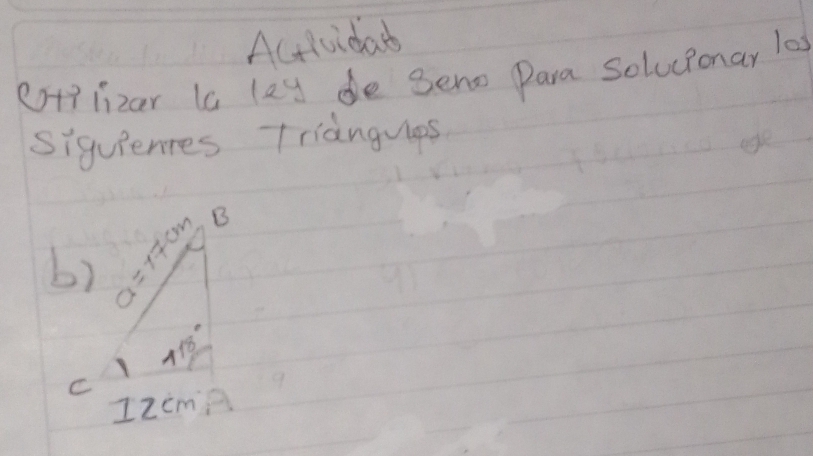 Actividad
Utilizar la ley de Seno Para Solucionar los
Siguientes Triángulos
b)
a=17cm
B
118°
C
12cm
A